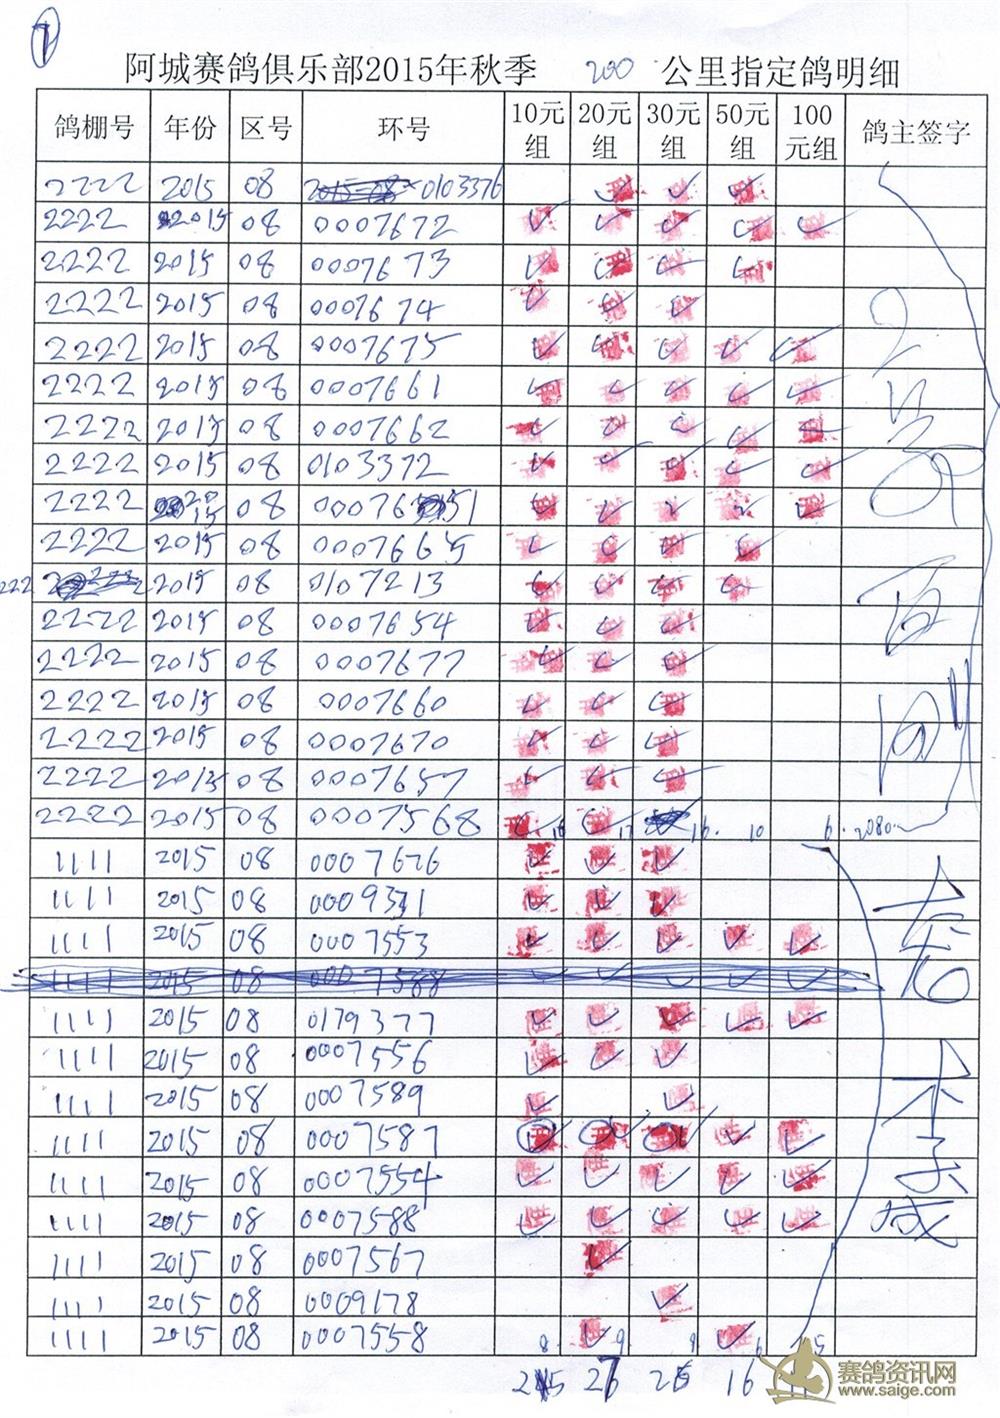 1
阿城赛鸽俱乐部2015年秋季 200 公里指定鸽明细
鸽棚号 年份 区号 环号 10元组 20元组 30元组 50元组 100元组 鸽主签字
2222 2015 08 0103376 ✓ ✓ ✓
2222 2015 08 0007672 ✓ ✓ ✓ ✓ ✓
2222 2015 08 0007673 ✓ ✓ ✓ ✓
2222 2015 08 0007674 ✓ ✓ ✓
2222 2015 08 0007675 ✓ ✓ ✓ ✓ ✓
2222 2015 08 0007661 ✓ ✓ ✓ ✓ ✓
2222 2015 08 0007662 ✓ ✓ ✓ ✓ ✓
2222 2015 08 0103372 ✓ ✓ ✓ ✓ ✓
2222 2015 08 0007651 ✓ ✓ ✓ ✓ ✓
2222 2015 08 0007665 ✓ ✓ ✓ ✓
222 2015 08 0107213 ✓ ✓ ✓ ✓
2222 2015 08 0007654 ✓ ✓ ✓
2222 2015 08 0007677 ✓ ✓ ✓
2222 2015 08 0007660 ✓ ✓ ✓
2222 2015 08 0007670 ✓ ✓ ✓
2222 2015 08 0007657 ✓ ✓ ✓
2222 2015 08 0007568 ✓ 16 ✓ 17 16 10 6 2080
1111 2015 08 0007626 ✓ ✓ ✓
1111 2015 08 0009331 ✓ ✓ ✓
1111 2015 08 0007553 ✓ ✓ ✓ ✓ ✓
1111 2015 08 0007588 ✓ ✓ ✓ ✓ ✓
1111 2015 08 0179377 ✓ ✓ ✓ ✓ ✓
1111 2015 08 0007556 ✓ ✓ ✓
1111 2015 08 0007589 ✓ ✓
1111 2015 08 0007587 ✓ ✓ ✓ ✓ ✓
1111 2015 08 0007554 ✓ ✓ ✓ ✓ ✓
1111 2015 08 0007588 ✓ ✓ ✓ ✓ ✓
1111 2015 08 0007567 ✓
1111 2015 08 0009178 ✓
1111 2015 08 0007558 8 ✓ 9 9 ✓ 6 5
25 27 25 16
赛鸽资讯网
www.saige.com